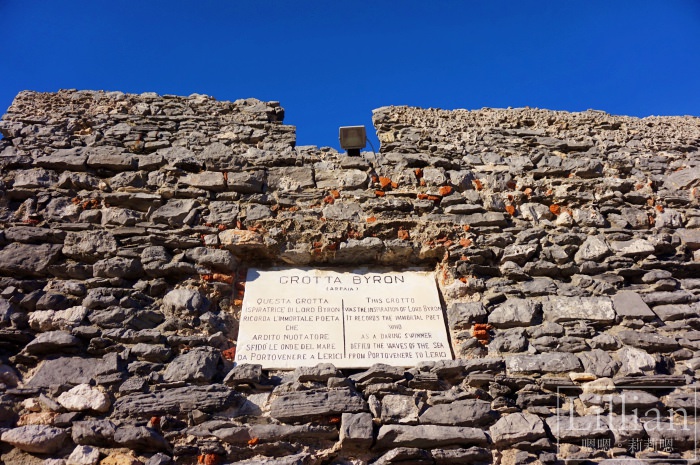 GROTTA BYRON
(ARPAIA)
QUESTA GROTTA
ISPIRATRICE DI LORD BYRON
RICORDA L'IMMORTALE POETA
CHE
ARDITO NUOTATORE
SFIDÒ LE ONDE DEL MARE
DA PORTOVENERE A LERICI
THIS GROTTO
WAS THE INSPIRATION OF LORD BYRON
IT RECORDS THE IMMORTAL POET
WHO
AS A DARING SWIMMER
DEFIED THE WAVES OF THE SEA
FROM PORTOVENERE TO LERICI
Lillian
嗯嗯 莉莉嗯